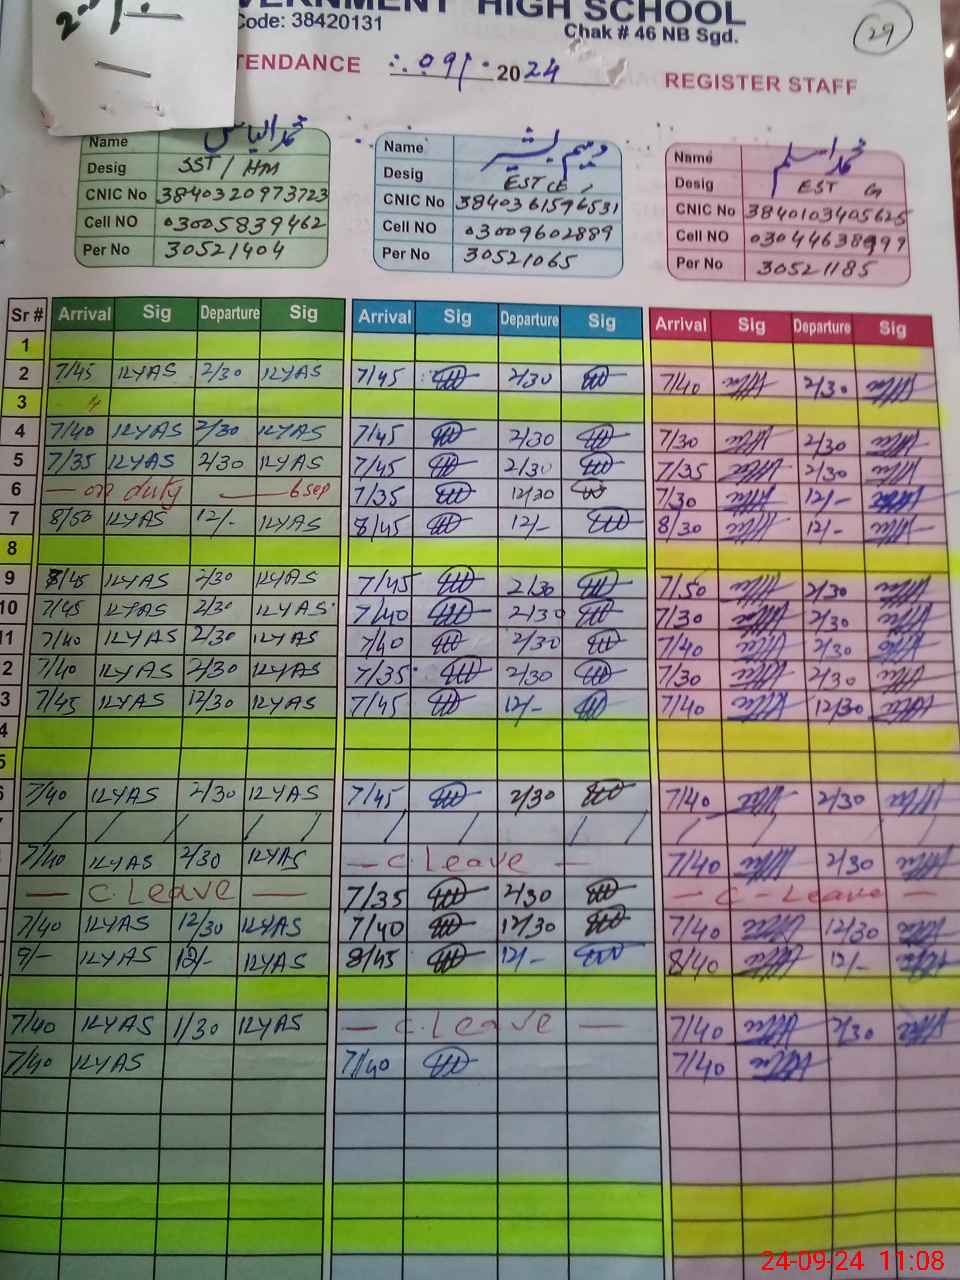 VERNMENT HIGH SCHOOL
Code: 38420131
Chak # 46 NB Sgd.
29
TENDANCE 09/ 2024 REGISTER STAFF
Name محمد الیاس
Desig SST / HM
CNIC No 3840320973723
Cell NO 03005839462
Per No 30521404
Name وسیم بشیر
Desig EST CE
CNIC No 3840361596531
Cell NO 03009602889
Per No 30521065
Name محمد اسلم
Desig EST
CNIC No 3840103405625
Cell NO
Per No 30521185
Sr # Arrival Sig Departure Sig Arrival Sig Departure Sig Arrival Sig Departure Sig
1
2 7/45 ILYAS 2/30 ILYAS 7/45 2/30 7/40 2/30
3
4 7/40 ILYAS 2/30 ILYAS 7/45 2/30 7/30 2/30
5 7/35 ILYAS 2/30 ILYAS 7/45 2/30 7/35 2/30
6 — on duty — 6 sep 7/35 12/30 7/30 12/-
7 8/50 ILYAS 12/- ILYAS 8/45 12/- 8/30 12/-
8
9 8/45 ILYAS 2/30 ILYAS 7/45 2/30 7/50 2/30
10 7/45 ILYAS 2/30 ILYAS 7/40 2/30 7/30 2/30
11 7/40 ILYAS 2/30 ILYAS 7/40 2/30 7/40 2/30
2 7/40 ILYAS 2/30 ILYAS 7/35 2/30 7/30 2/30
3 7/45 ILYAS 12/30 ILYAS 7/45 12/- 7/40 12/30
4
5
7/40 ILYAS 2/30 ILYAS 7/45 2/30 7/40 2/30
7/40 ILYAS 2/30 ILYAS — C. Leave — 7/40 2/30
— C. Leave — 7/35 2/30 — C - Leave —
7/40 ILYAS 12/30 ILYAS 7/40 12/30 7/40 12/30
9/- ILYAS 12/- ILYAS 8/45 12/- 8/40 12/-
7/40 ILYAS 1/30 ILYAS — C. Leave — 7/40 2/30
7/40 ILYAS 7/40 7/40
24-09-24 11:08